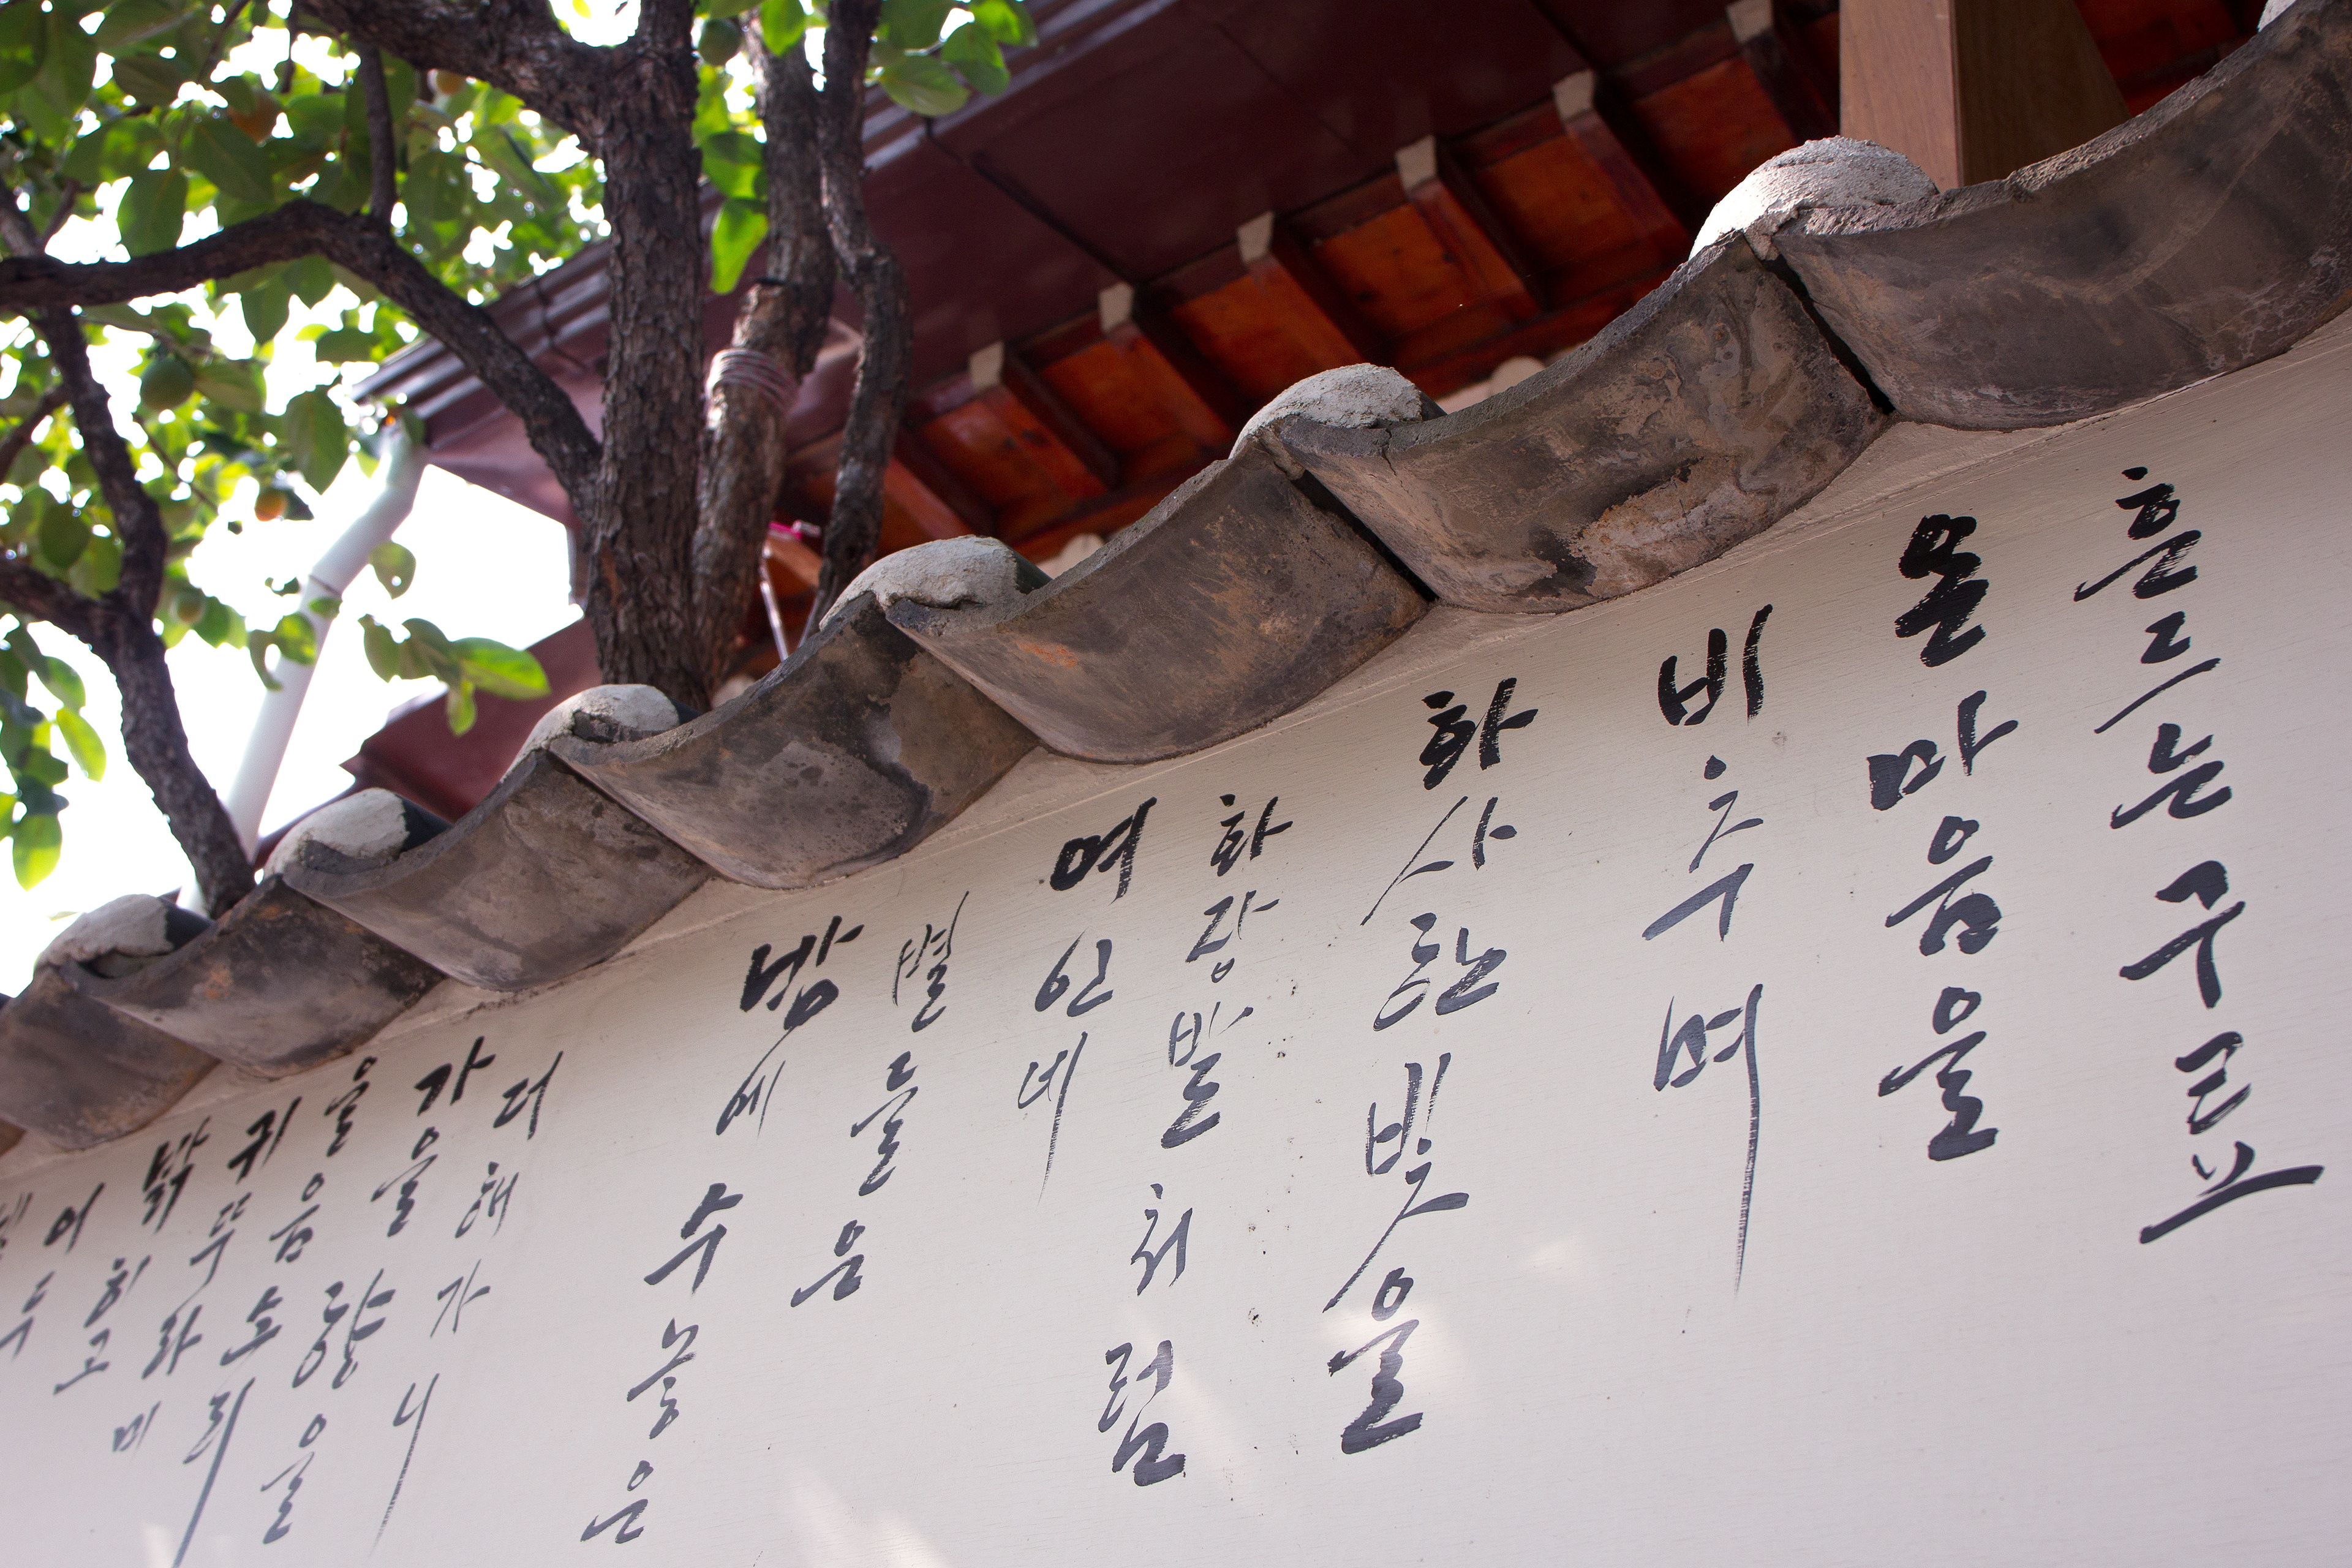 온마음을
비추며
화사한빛을
화장발처럼
여인네
별들은
밤에수놓은
더해가니
가을향을
울음소리
귀뚜라미
밝히고
어두